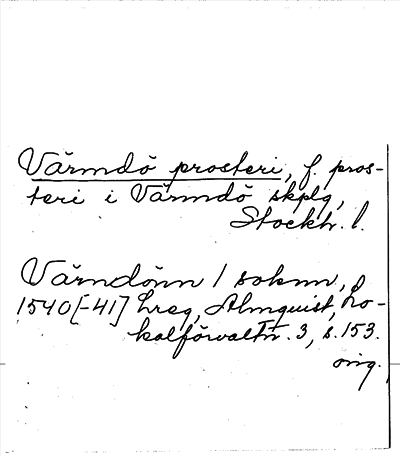 Värmdö prosteri, f. pros-
teri i Värmdö skplg,
Stockh. l.
Värndönn / soknn, f
1540[-41] hrsg, Almquist, Lo-
kalförvaltn. 3, s. 153.
orig.